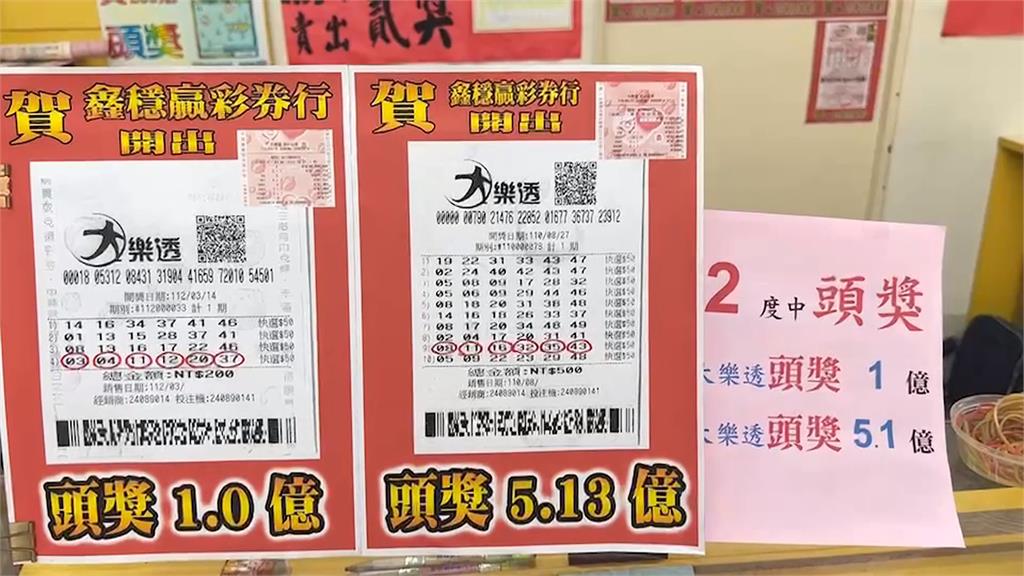 頭獎
賣出貳獎
賀
鑫穩贏彩券行
開出
大樂透
00018 05312 08431 31904 41659 72010 54501
開獎日期:112/03/14
期別:#112000033 計 1 期
14 16 34 37 41 46 快選$50
01 13 15 28 37 41 快選$50
08 13 16 17 22 46 快選$50
03 04 11 12 20 37 快選$50
總金額:NT$200
銷售日期:112/03/
經銷商:24089014 投注機:240890141
頭獎 1.0 億
賀
鑫穩贏彩券行
開出
大樂透
00000 00790 21476 22852 01677 36737 23912
開獎日期:110/08/27
期別:#110000078 計 1 期
1) 19 22 31 33 43 47 快選$50
2) 02 24 40 42 43 47 快選$50
3) 05 08 09 17 28 32 快選$50
4) 05 06 09 29 44 46 快選$50
5) 08 18 20 31 38 48 快選$50
6) 14 16 18 26 33 37 快選$50
7) 08 17 20 34 48 49 快選$50
8) 02 04 17 20 31 41 快選$50
9) 43 快選$50
10) 05 09 22 23 29 50 快選$50
總金額:NT$500
銷售日期:110/08/
經銷商:24089014 投注機:240890141
頭獎 5.13 億
2 度中 頭獎
大樂透頭獎 1 億
大樂透頭獎 5.1 億